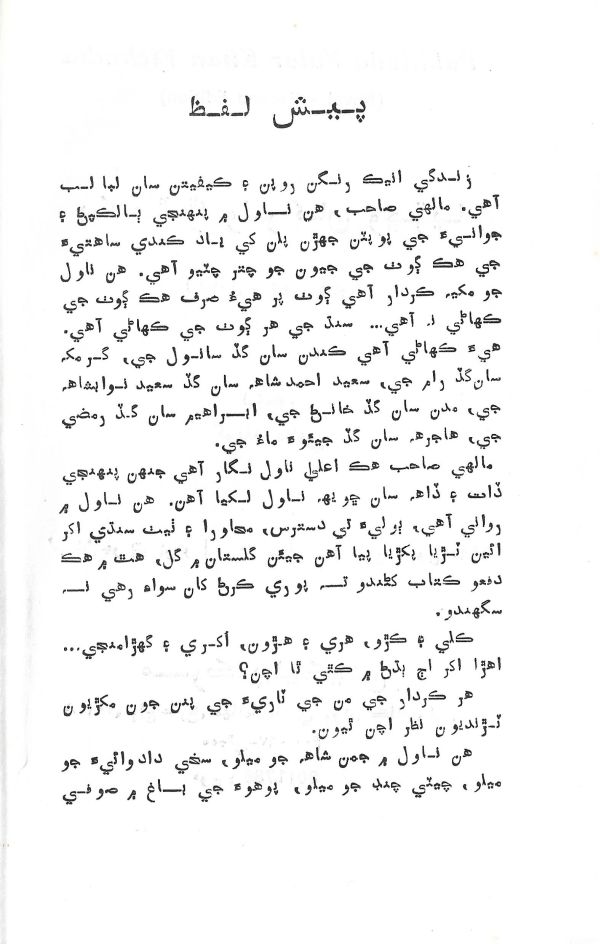 پيش لفظ
زندگي انيڪ رنگن روپن ۽ ڪيفيتن سان لبا لب
آهي. مالهي صاحب، هن ناول ۾ پنهنجي ٻالڪپڻ ۽
جوانيءَ جي پوپٽن جهڙن پلن کي ياد ڪندي ساهتيءَ
جي هڪ ڳوٺ جي جيون جو چتر چٽيو آهي. هن ناول
جو مکيه ڪردار آهي ڳوٺ پر هيءُ صرف هڪ ڳوٺ جي
ڪهاڻي نہ آهي... سنڌ جي هر ڳوٺ جي ڪهاڻي آهي.
هيءَ ڪهاڻي آهي ڪندن سان گڏ سانول جي، گرمکہ
سان گڏ رام جي، سعيد احمدشاهہ سان گڏ سعيد نوابشاهہ
جي، مدن سان گڏ خانڻ جي، ابراهيم سان گڏ رمضي
جي، هاجرهہ سان گڏ جيٺوءَ ماءُ جي.
مالهي صاحب هڪ اعليٰ ناول نگار آهي جنهن پنهنجي
ڏات ۽ ڏاهہ سان ڇويهہ ناول لکيا آهن. هن ناول ۾
رواني آهي، ٻوليءَ تي دسترس، محاورا ۽ ٺيٺ سنڌي اکر
ائين ٽڙيا پکڙيا پيا آهن جيئن گلستان ۾ گل، هٿ ۾ هڪ
دفعو ڪتاب کڻندو تہ پوري ڪرڻ کان سواءِ رهي نہ
سگهندو.
ڪلي ۽ ڪڙو، هري ۽ هڙون، اُڪري ۽ گهڙامنجي...
اهڙا اکر اڄ ٻڌڻ ۾ ڪٿي ٿا اچن؟
هر ڪردار جي من جي ٽاريءَ جي پنن جون مکڙيون
ٽڙنديون نظر اچن ٿيون.
هن ناول ۾ جمن شاهہ جو ميلو، سخي دادوائيءَ جو
ميلو، چيٽي چنڊ جو ميلو، پوهوءَ جي باغ ۾ صوفي